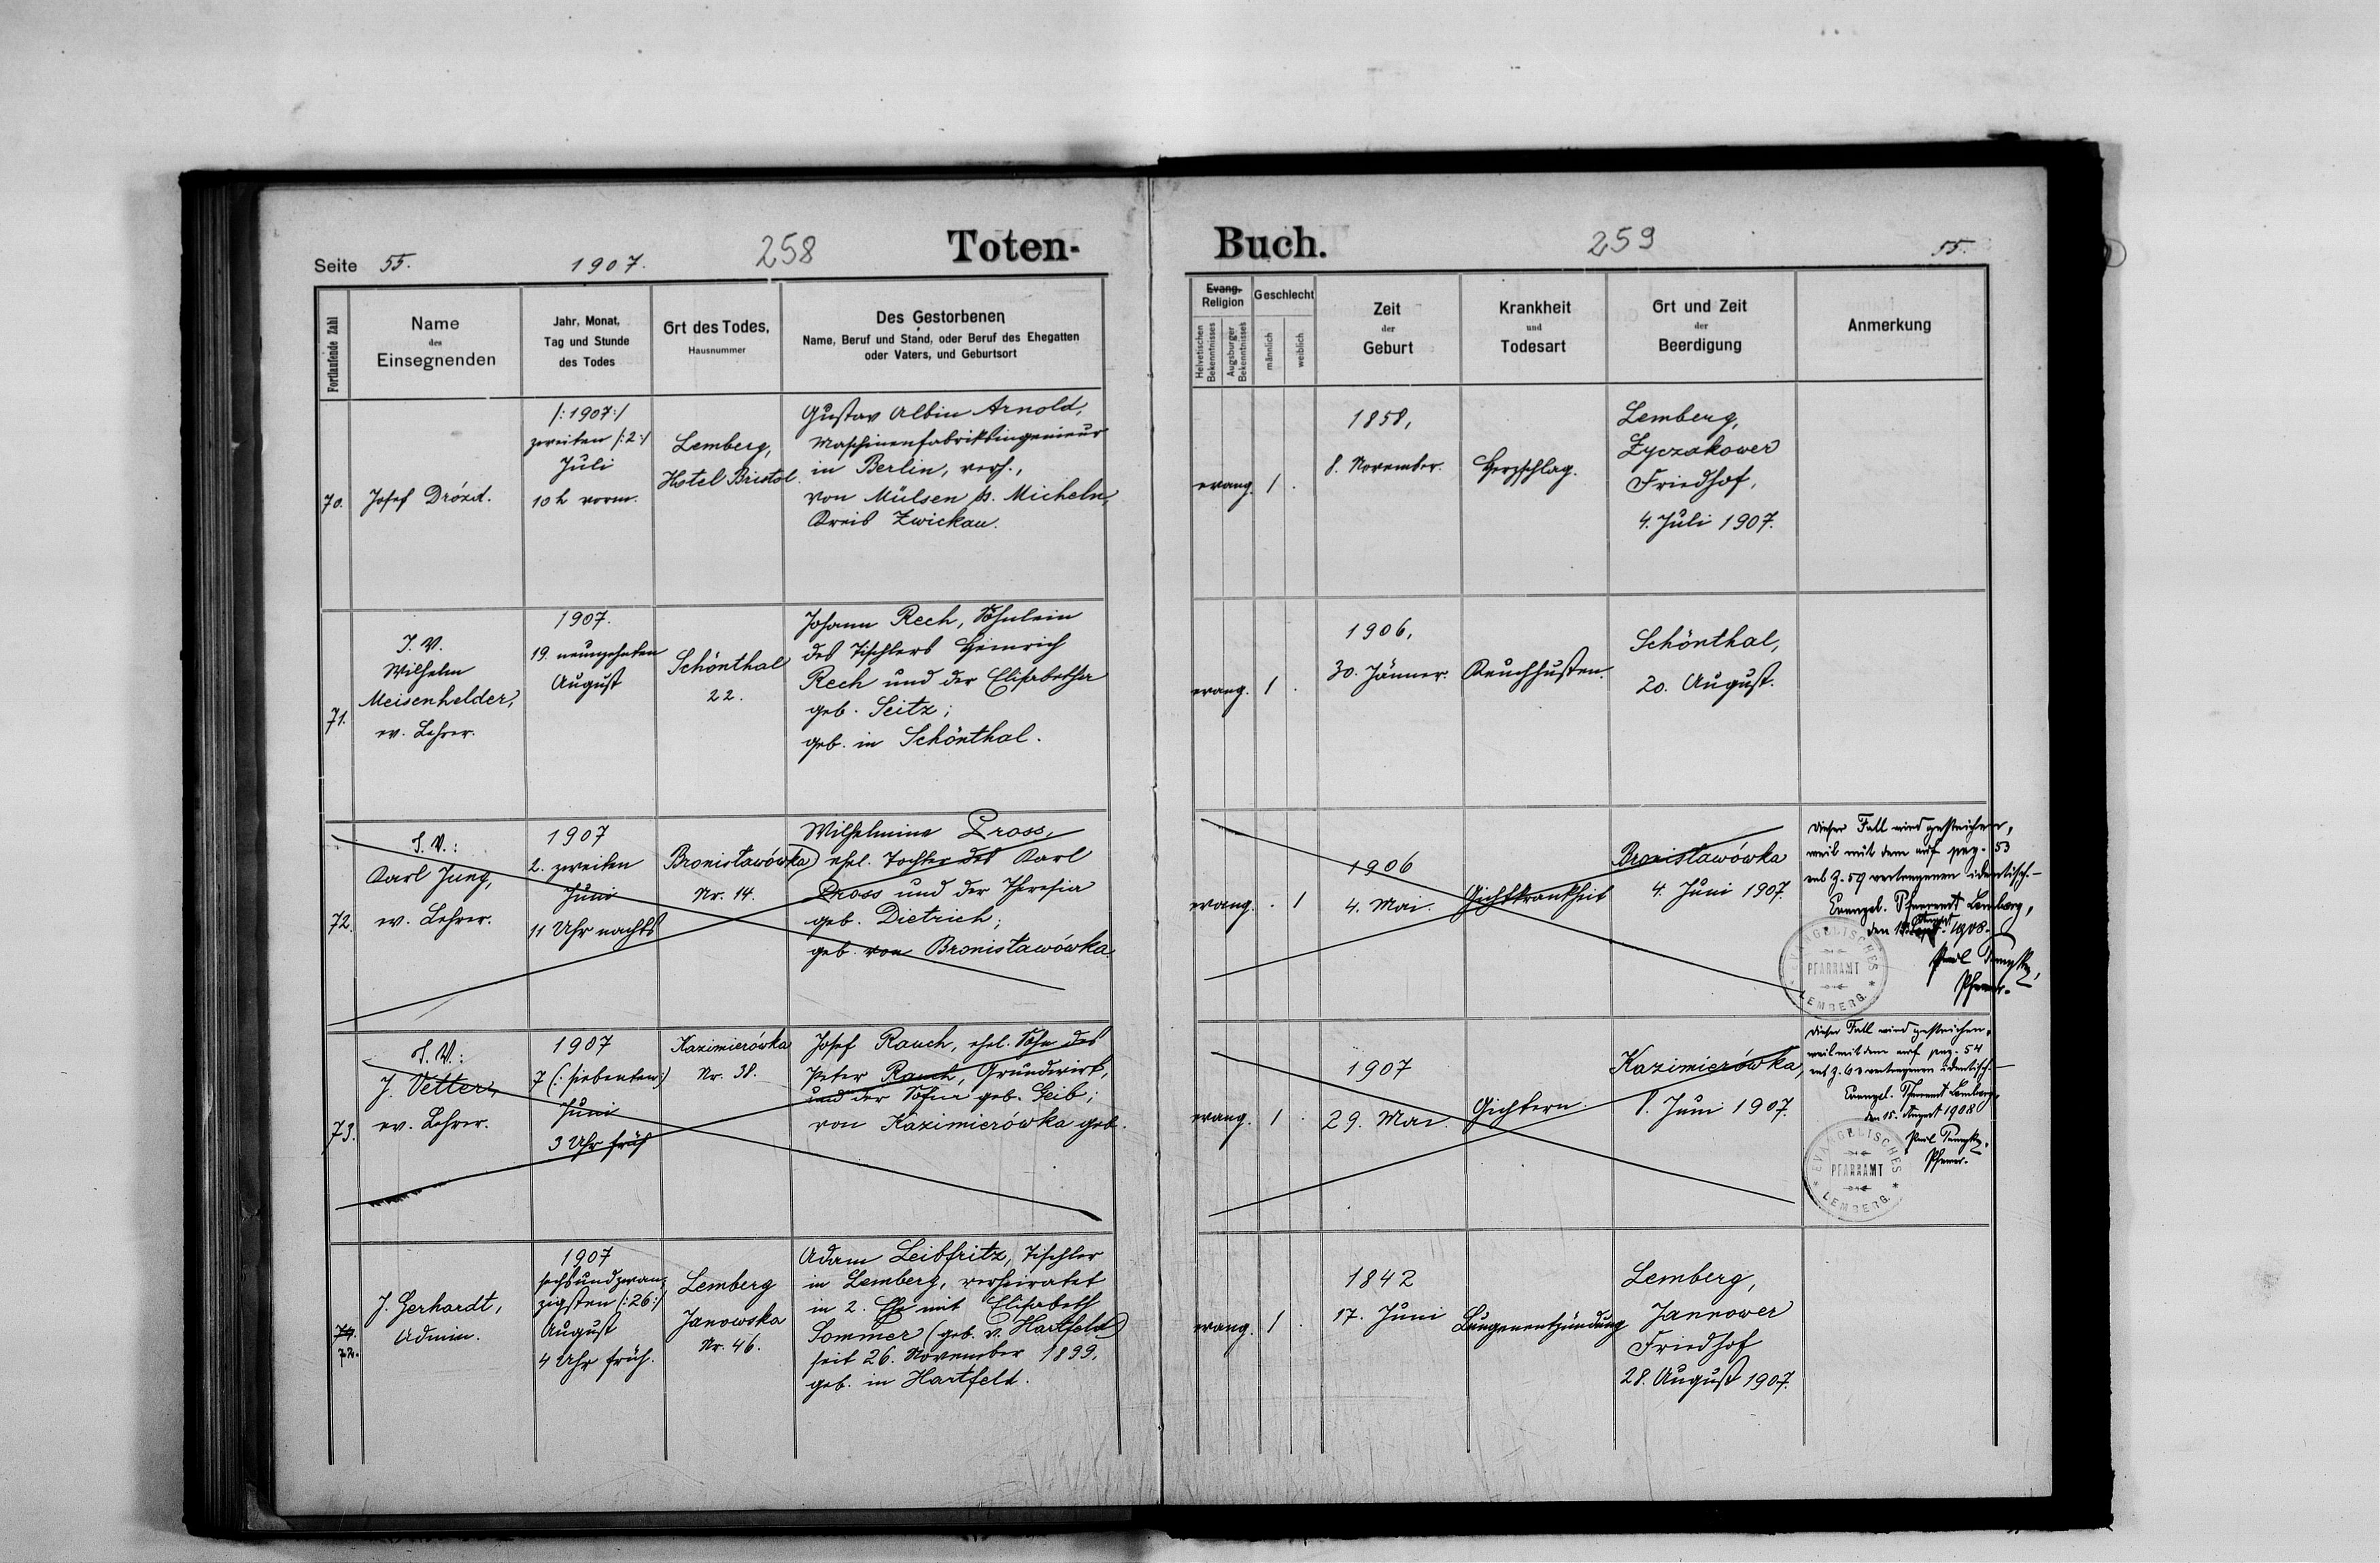 Seite 55.
1907.
258
Toten-
Fortlaufende Zahl
Name
des
Einsegnenden
Jahr, Monat,
Tag und Stunde
des Todes
Ort des Todes,
Hausnummer
Des Gestorbenen
Name, Beruf und Stand, oder Beruf des Ehegatten
oder Vaters, und Geburtsort
70.
Josef Drózd.
/:1907:/
zweiten /:2:/
Juli
10 h vorm.
Lemberg,
Hotel Bristol.
Gustav Albin Arnold,
Maschinenfabriksingenieur
in Berlin, verh.,
von Mülsen St. Micheln,
Kreis Zwickau.
71.
I. V.
Wilhelm
Meisenhelder,
ev. Lehrer.
1907.
19. neunzehnten
August
Schönthal
22.
Johann Rech, Söhnlein
des Tischlers Heinrich
Rech und der Elisabetha
geb. Seitz;
geb. in Schönthal.
72.
I. V.:
Karl Jung,
ev. Lehrer.
1907
2. zweiten
Juni
11 Uhr nachts
Bronisławówka
Nr. 14.
Wilhelmine Pross,
ehel. Tochter des Karl
Pross und der Theresia
geb. Dietrich;
geb. von Bronisławówka.
73.
I. V.:
J. Vetter,
ev. Lehrer.
1907
7 (: siebenten:)
Juni
3 Uhr früh
Kazimierówka
Nr. 38.
Josef Rauch, ehel. Sohn des
Peter Rauch, Grundwirt,
und der Sofia geb. Geib;
von Kazimierówka geb.
74.
72.
J. Gerhardt,
Admin.
1907
sechsundzwan-
zigsten (:26:)
August
4 Uhr früh.
Lemberg
Janowska
Nr. 46.
Adam Leibfritz, Tischler
in Lemberg, verheiratet
in 2. Ehe mit Elisabeth
Sommer (geb. v. Hartfeld)
seit 26. November 1899.
geb. in Hartfeld.
Buch.
259
55.
Evang.
Religion
Helvetischen
Bekenntnisses
Augsburger
Bekenntnisses
Geschlecht
männlich
weiblich
Zeit
der
Geburt
Krankheit
und
Todesart
Ort und Zeit
der
Beerdigung
Anmerkung
evang. 1 .
1858,
8. November.
Herzschlag.
Lemberg,
Łyczakower
Friedhof,
4. Juli 1907.
evang. 1 .
1906,
30. Jänner.
Keuchhusten.
Schönthal,
20. August.
evang. . 1
1906
4. Mai.
Gichtkrankheit
Bronisławówka
4. Juni 1907.
Dieser Fall wird gestrichen,
weil mit dem auf pag. 53
sub Z. 59 vertragenen identisch.-
Evangel. Pfarramt Lemberg,
August 1908.
Pfarrer.
EVANGELISCHES
PFARRAMT
LEMBERG
evang. 1 .
1907
29. Mai.
Gichtern.
Kazimierówka,
8. Juni 1907.
Dieser Fall wird gestrichen,
weil mit dem auf pag. 54
sub Z. 63 vertragenen identisch.-
Evangel. Pfarramt Lemberg,
den 15. August 1908
Pfarrer.
EVANGELISCHES
PFARRAMT
LEMBERG
evang. 1 .
1842
17. Juni
Lungenentzündung
Lemberg,
Jannower
Friedhof
28. August 1907.